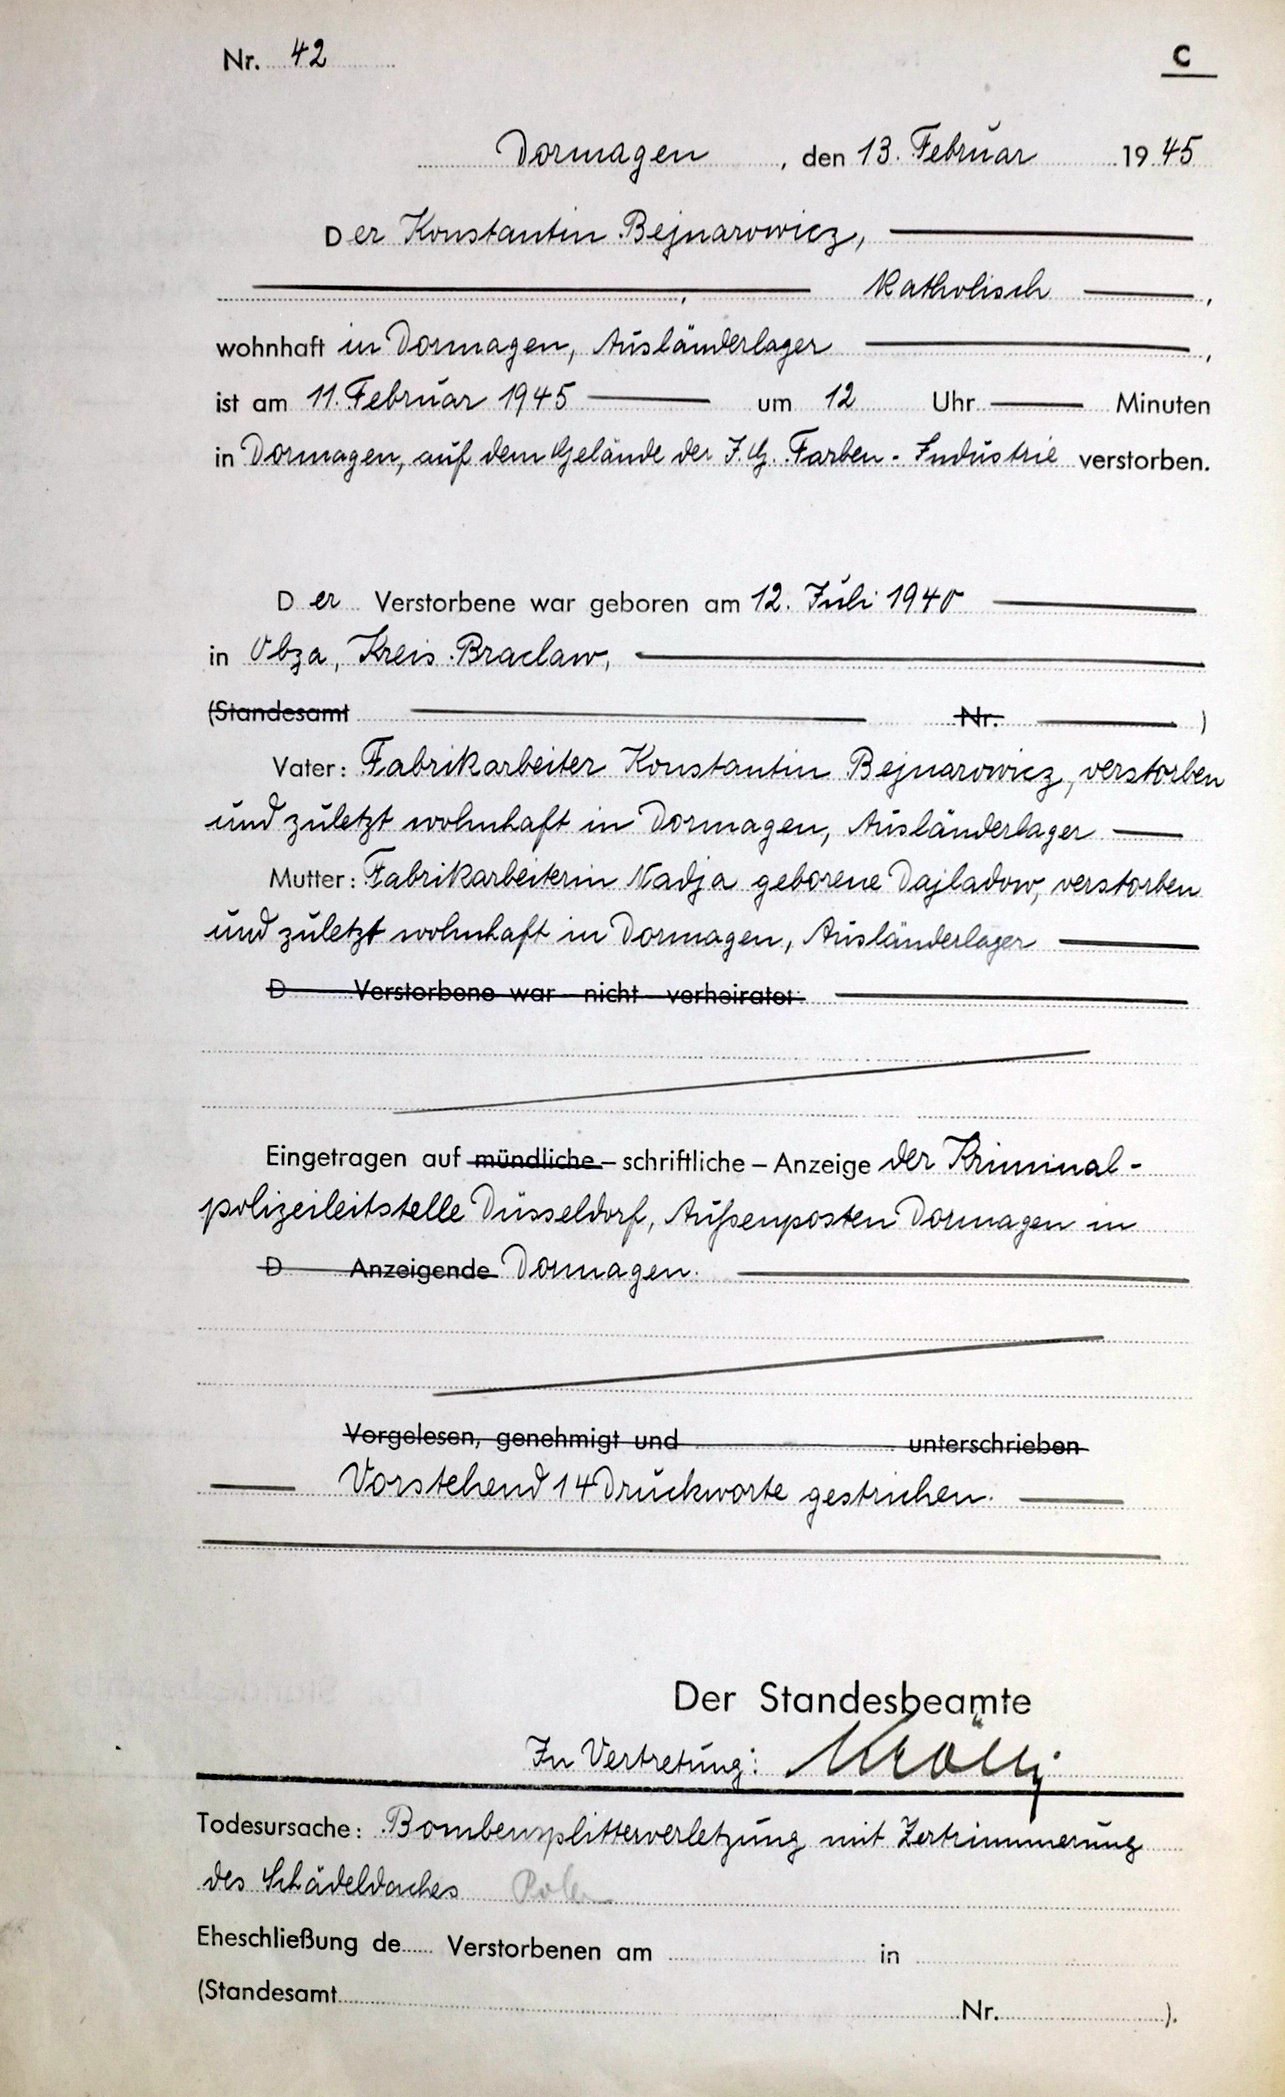 Nr. 42
C
Dormagen, den 13. Februar 1945
Der Konstantin Bejnarowicz,
, katholisch,
wohnhaft in Dormagen, Ausländerlager,
ist am 11. Februar 1945 um 12 Uhr Minuten
in Dormagen, auf dem Gelände der I.G. Farben-Industrie verstorben.
Der Verstorbene war geboren am 12. Juli 1940
in Obza, Kreis Braclaw,
(Standesamt Nr. )
Vater: Fabrikarbeiter Konstantin Bejnarowicz, verstorben
und zuletzt wohnhaft in Dormagen, Ausländerlager
Mutter: Fabrikarbeiterin Nadja geborene Dajladow, verstorben
und zuletzt wohnhaft in Dormagen, Ausländerlager
D Verstorbene war nicht verheiratet.
Eingetragen auf mündliche – schriftliche – Anzeige der Kriminal-
polizeileitstelle Düsseldorf, Außenposten Dormagen in
D Anzeigende Dormagen.
Vorgelesen, genehmigt und unterschrieben
Vorstehend 14 Druckworte gestrichen.
Der Standesbeamte
In Vertretung:
Todesursache: Bombensplitterverletzung mit Zertrümmerung
des Schädeldaches Polen
Eheschließung de Verstorbenen am in
(Standesamt Nr. ).